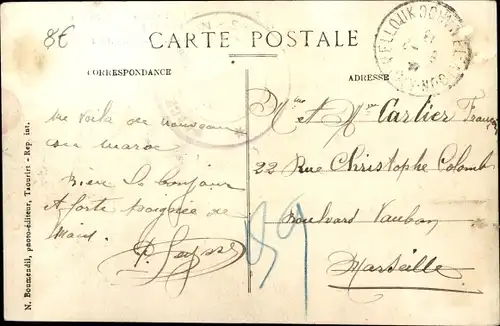 8€
CARTE POSTALE
CORRESPONDANCE
ADRESSE
me voila de nouveau
au maroc
Bien le bonjour
et forte poignée de
Main
Mme et Mr Cartier
22 Rue Christophe Colomb
Boulvard Vauban
Marseille
N. Boumendil, photo-éditeur, Taourirt - Rep. int.